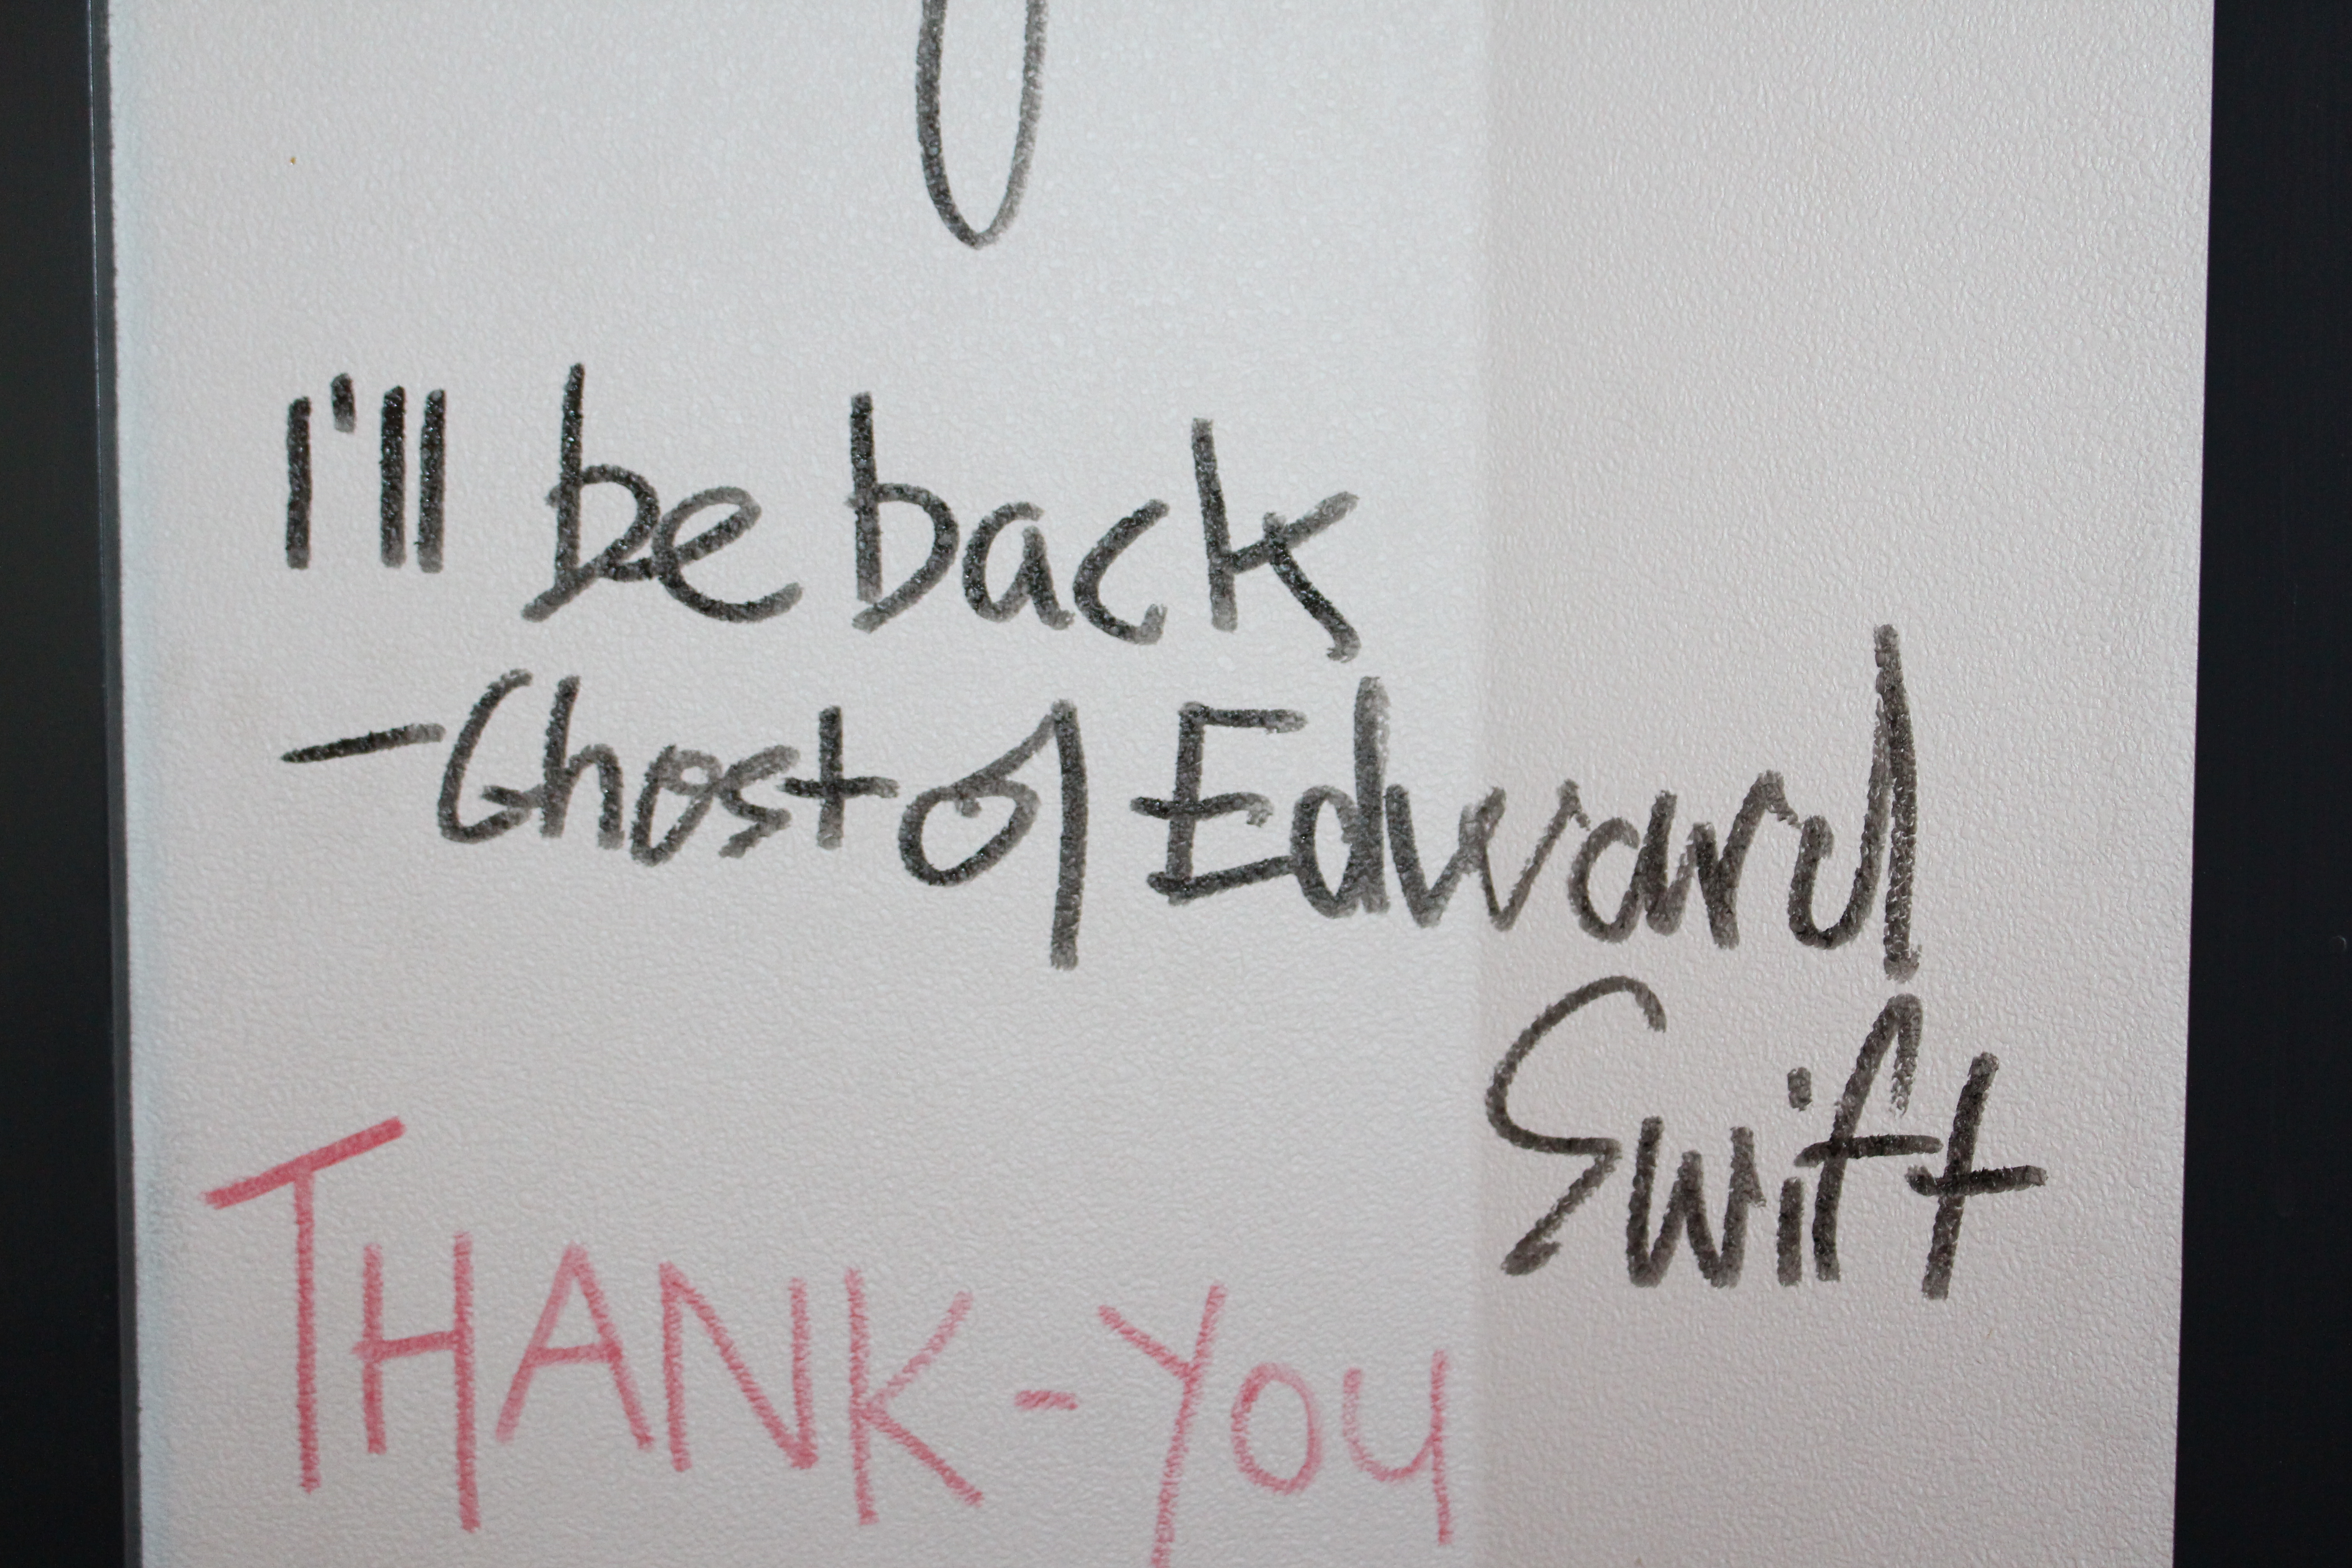 I'll be back
-Ghost of Edward
Swift
THANK-YOU